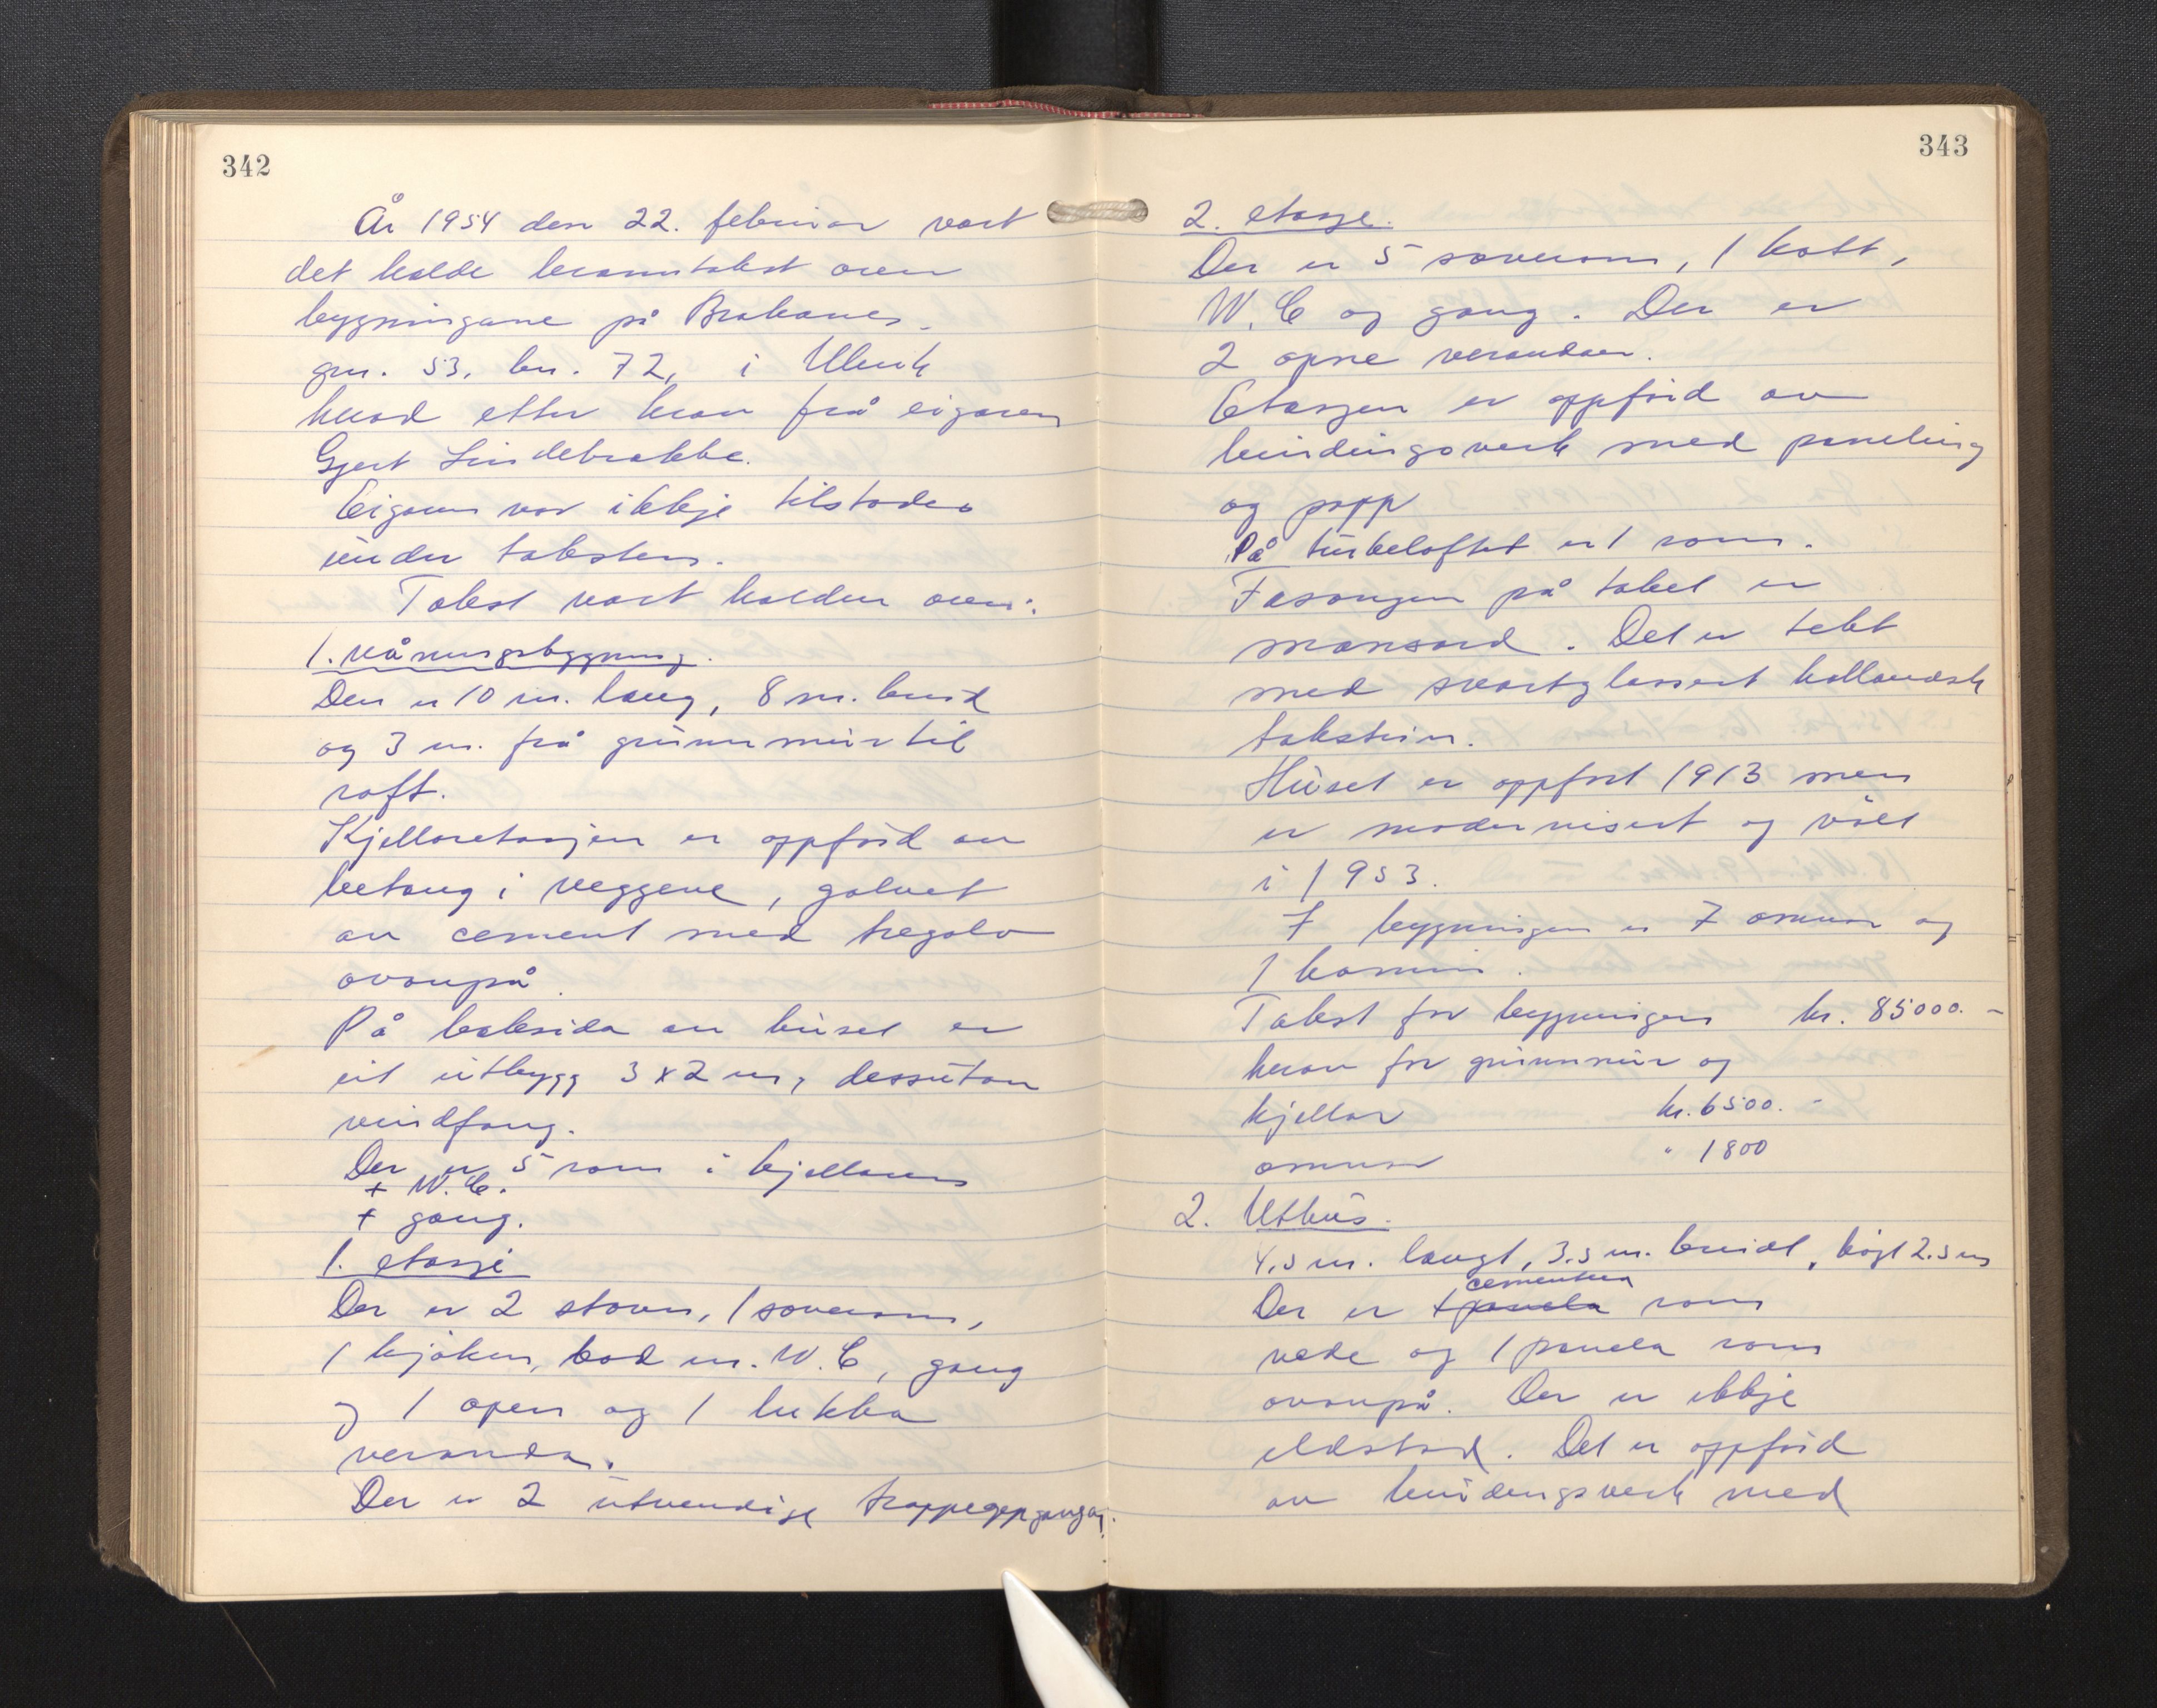 342
År 1954 den 22. februar vart
det halde branntakst over
bygningane på Brakanes,
gnr. 53, bnr. 72, i Ulvik
herad etter krav frå eigaren
Gjert Lindebrekke.
Eigaren var ikkje tilstades
under taksten.
Takst vart halden over:
1. våningsbygning.
Den er 10 m. lang, 8 m. breid
og 3 m. frå grunnmur til
raft.
Kjelleretasjen er oppförd av
betong i veggene, golvet
av cement med tregolv
ovanpå.
På baksida av huset er
eit utbygg 3 x 2 m, dessutan
vindfang.
Der er 5 rom i kjellaren
+ W.C.
+ gang.
1. etasje
Der er 2 stover, 1 soverom,
1 kjöken, bad m. W.C, gang
og 1 open og 1 lukka
veranda.
Der er 2 utvendige trappeoppgangar.
343
2. etasje.
Der er 5 soverom, 1 kott,
W.C og gang. Der er
2 opne verandaer.
Etasjen er oppförd av
bindingsverk med paneling
og papp
På turkeloftet er 1 rom.
Fasongen på taket er
mansard. Det er tekt
med svartglassert hollandsk
takstein.
Huset er oppfört 1913 men
er modernisert og völt
i 1953.
I bygningen er 7 omnar og
1 kamin.
Takst for bygningen kr. 85000.-
herav for grunnmur og
kjellar kr. 6500.-
omnar " 1800
2. Uthus.
4.5 m. langt, 3.5 m. breidt, högt 2.5 m
cementera
Der er 1 panela rom
nede og 1 panela rom
ovanpå. Der er ikkje
eldstad. Det er oppförd
av bindingsverk med